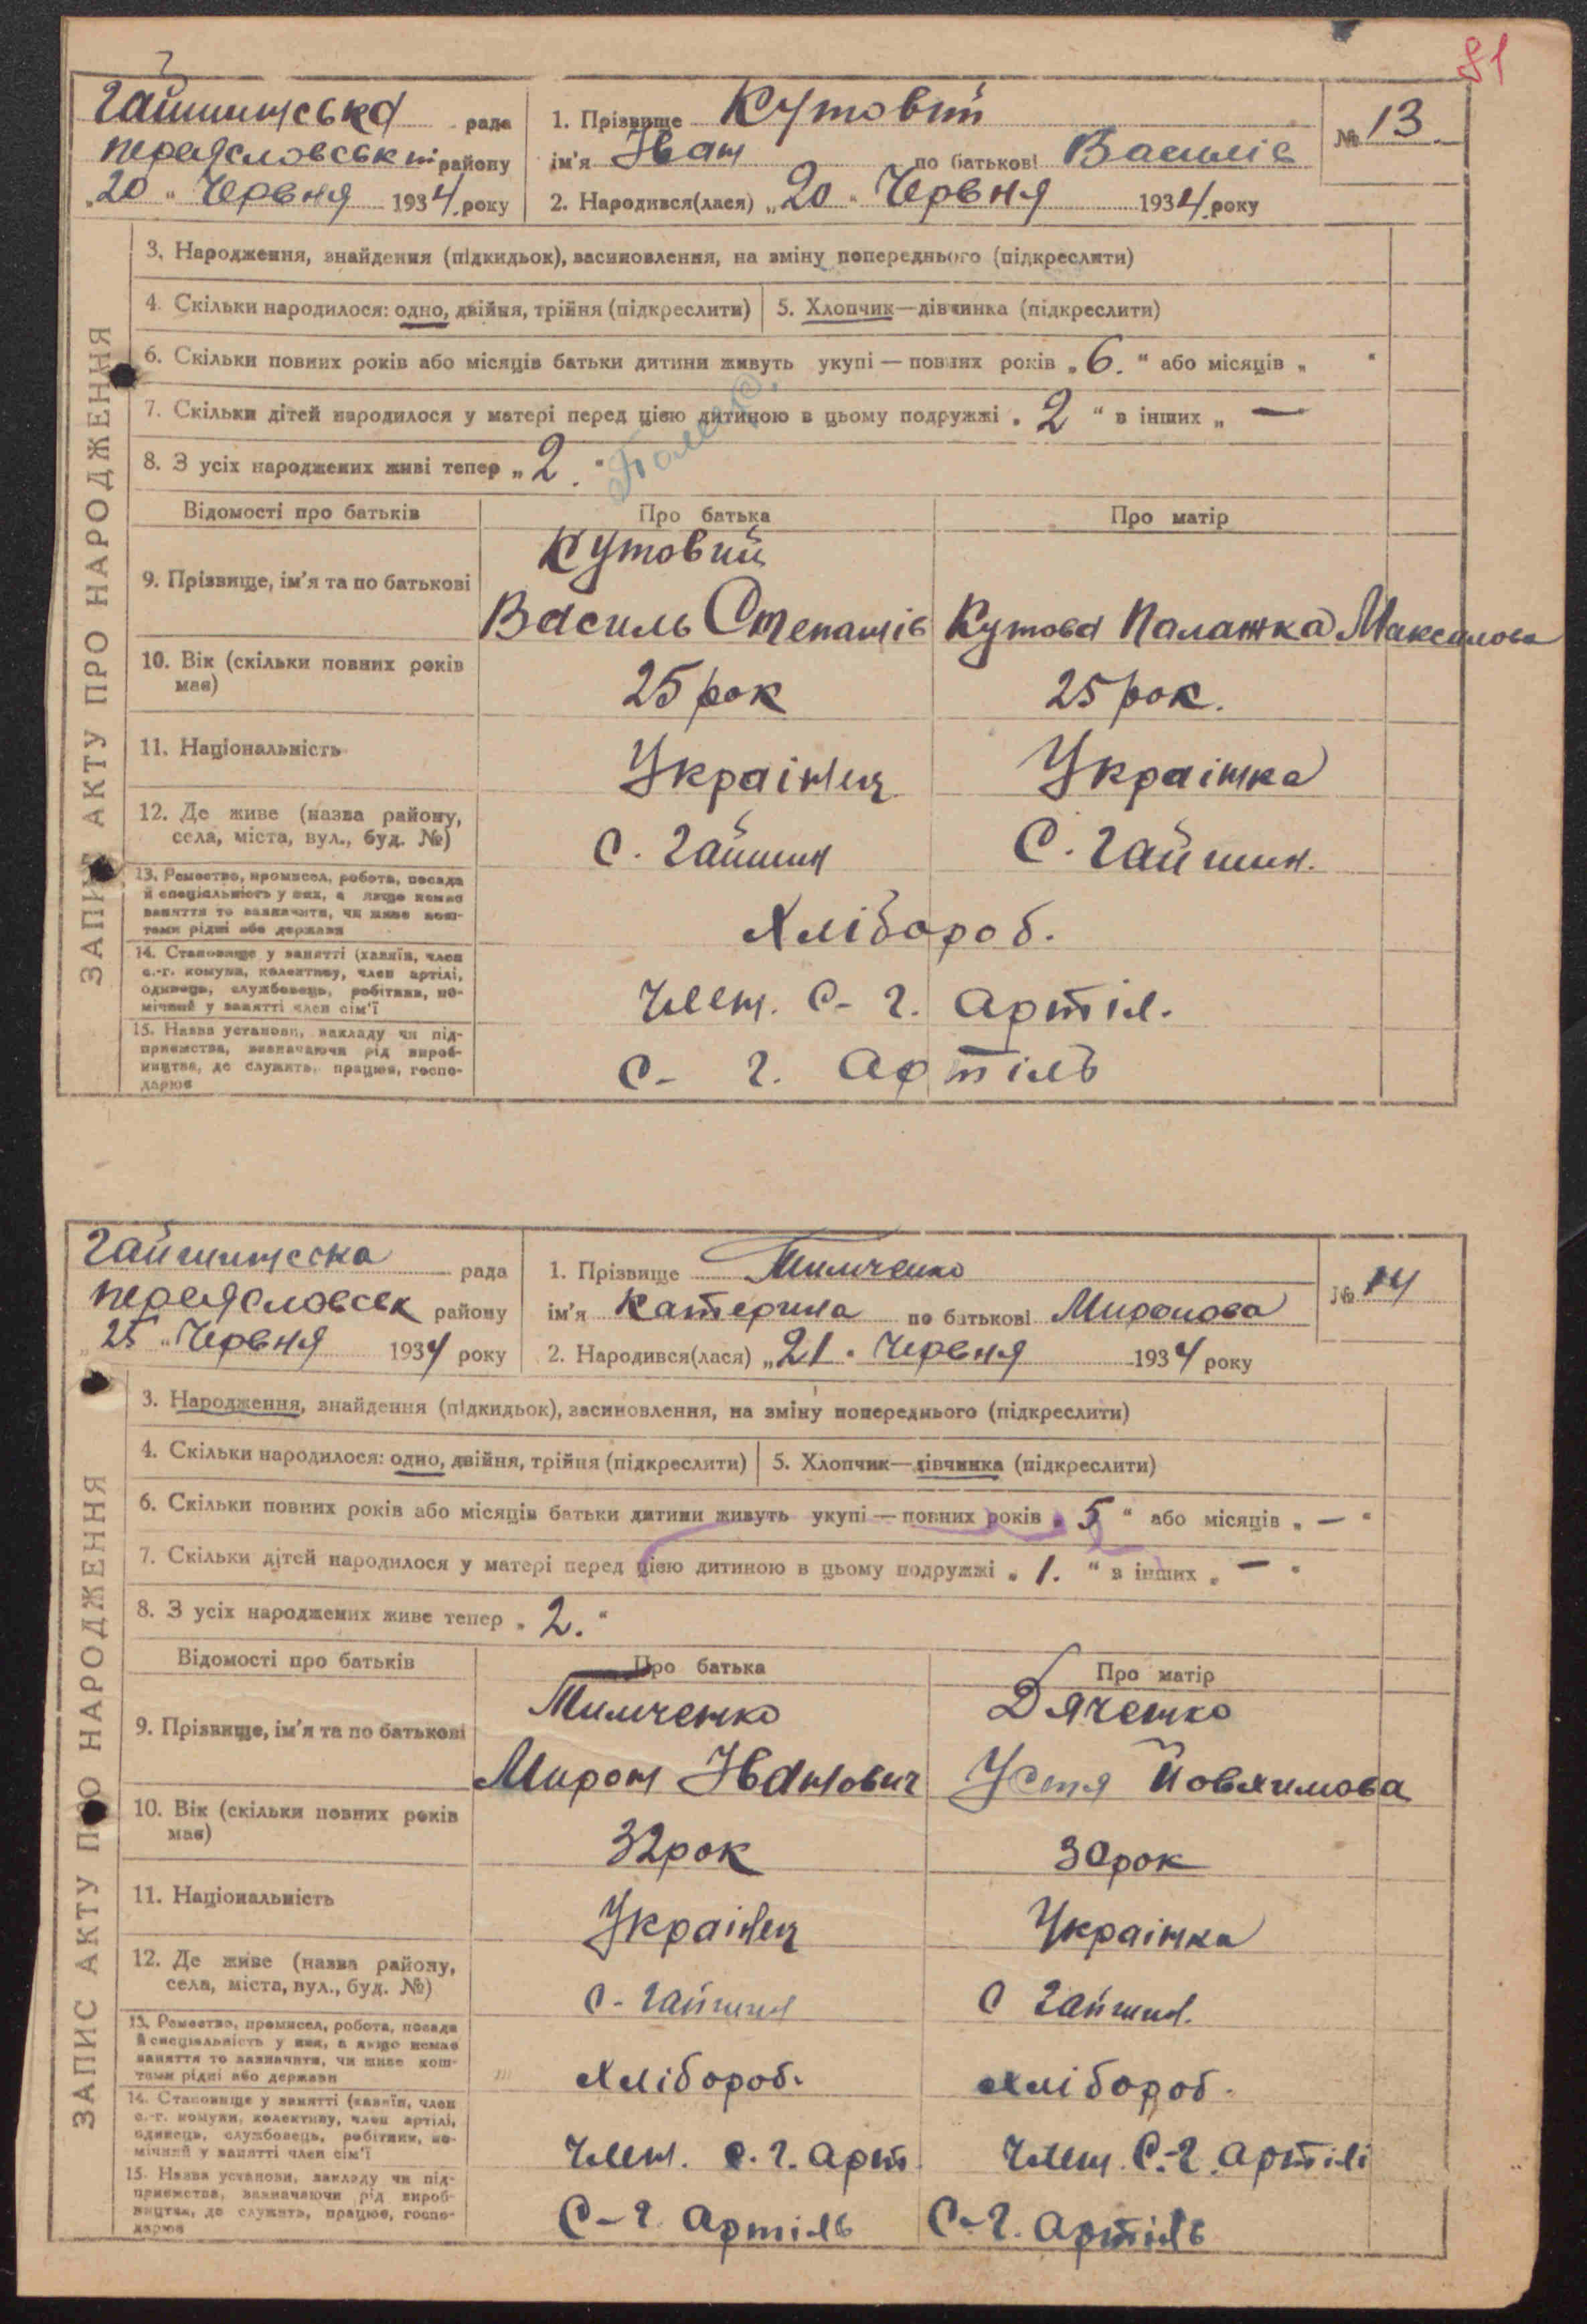 81
Гайшинська рада
Переясловський району
„20" Червня 1934 року
1. Прізвище Кутовий
ім'я Іван по батькові Василів
2. Народився(лася) „20" Червня 1934 року
№ 13
ЗАПИС АКТУ ПРО НАРОДЖЕННЯ
3. Народження, знайдення (підкидьок), засиновлення, на зміну попереднього (підкреслити)
4. Скільки народилося: одно, двійня, трійня (підкреслити) 5. Хлопчик—дівчинка (підкреслити)
6. Скільки повних років або місяців батьки дитини живуть укупі — повних років „6." або місяців „ "
7. Скільки дітей народилося у матері перед цією дитиною в цьому подружжі „2" в інших „ —
8. З усіх народжених живі тепер „2."
Відомості про батьків Про батька Про матір
9. Прізвище, ім'я та по батькові
Кутовий
Василь Степанів Кутова Палажка Максимова
10. Вік (скільки повних років має)
25 рок 25 рок.
11. Національність
Українец Українка
12. Де живе (назва району, села, міста, вул., буд. №)
с. Гайшин С. Гайшин.
13. Ремество, промисел, робота, посада
й спеціальність у них, а якщо немає
заняття то зазначити, чи живе кош-
тами рідні або держави
Хлібороб.
14. Становище у занятті (хазяїн, член
с.-г. комуни, колективу, член артілі,
одинець, службовець, робітник, по-
мічний у занятті член сім'ї
Член. с-г. артіл.
15. Назва установи, закладу чи під-
приємства, визначаючи рід вироб-
ництва, де служить, працює, госпо-
дарює
с- г. артіль
Гайшинска рада
Переясловсек району
„25" Червня 1934 року
1. Прізвище Тимченко
ім'я Катерина по батькові Миронова
2. Народився(лася) „21" Червня 1934 року
№ 14
ЗАПИС АКТУ ПРО НАРОДЖЕННЯ
3. Народження, знайдення (підкидьок), засиновлення, на зміну попереднього (підкреслити)
4. Скільки народилося: одно, двійня, трійня (підкреслити) 5. Хлопчик—дівчинка (підкреслити)
6. Скільки повних років або місяців батьки дитини живуть укупі — повних років „5" або місяців „—"
7. Скільки дітей народилося у матері перед цією дитиною в цьому подружжі „1." в інших „—"
8. З усіх народжених живе тепер „2."
Відомості про батьків Про батька Про матір
9. Прізвище, ім'я та по батькові
Тимченко Дяченко
Мирон Іванович Устя Йовхимова
10. Вік (скільки повних років має)
32рок 30рок
11. Національність
Українец Українка
12. Де живе (назва району, села, міста, вул., буд. №)
с-Гайшин с Гайшин.
13. Ремество, промисел, робота, посада
й спеціальність у них, а якщо немає
заняття то зазначити, чи живе кош-
тами рідні або держави
Хлібороб. Хлібороб.
14. Становище у занятті (хазяїн, член
с.-г. комуни, колективу, член артілі,
одинець, службовець, робітник, по-
мічний у занятті член сім'ї
Член. с.г. арт. Член. С.-г. артілі
15. Назва установи, закладу чи під-
приємства, зазначаючи рід вироб-
ництва, де служить, працює, госпо-
дарює
С-г. артіль С-г. артіль